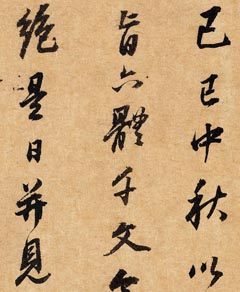 己巳中秋以
旨六體千文
絶是日并見